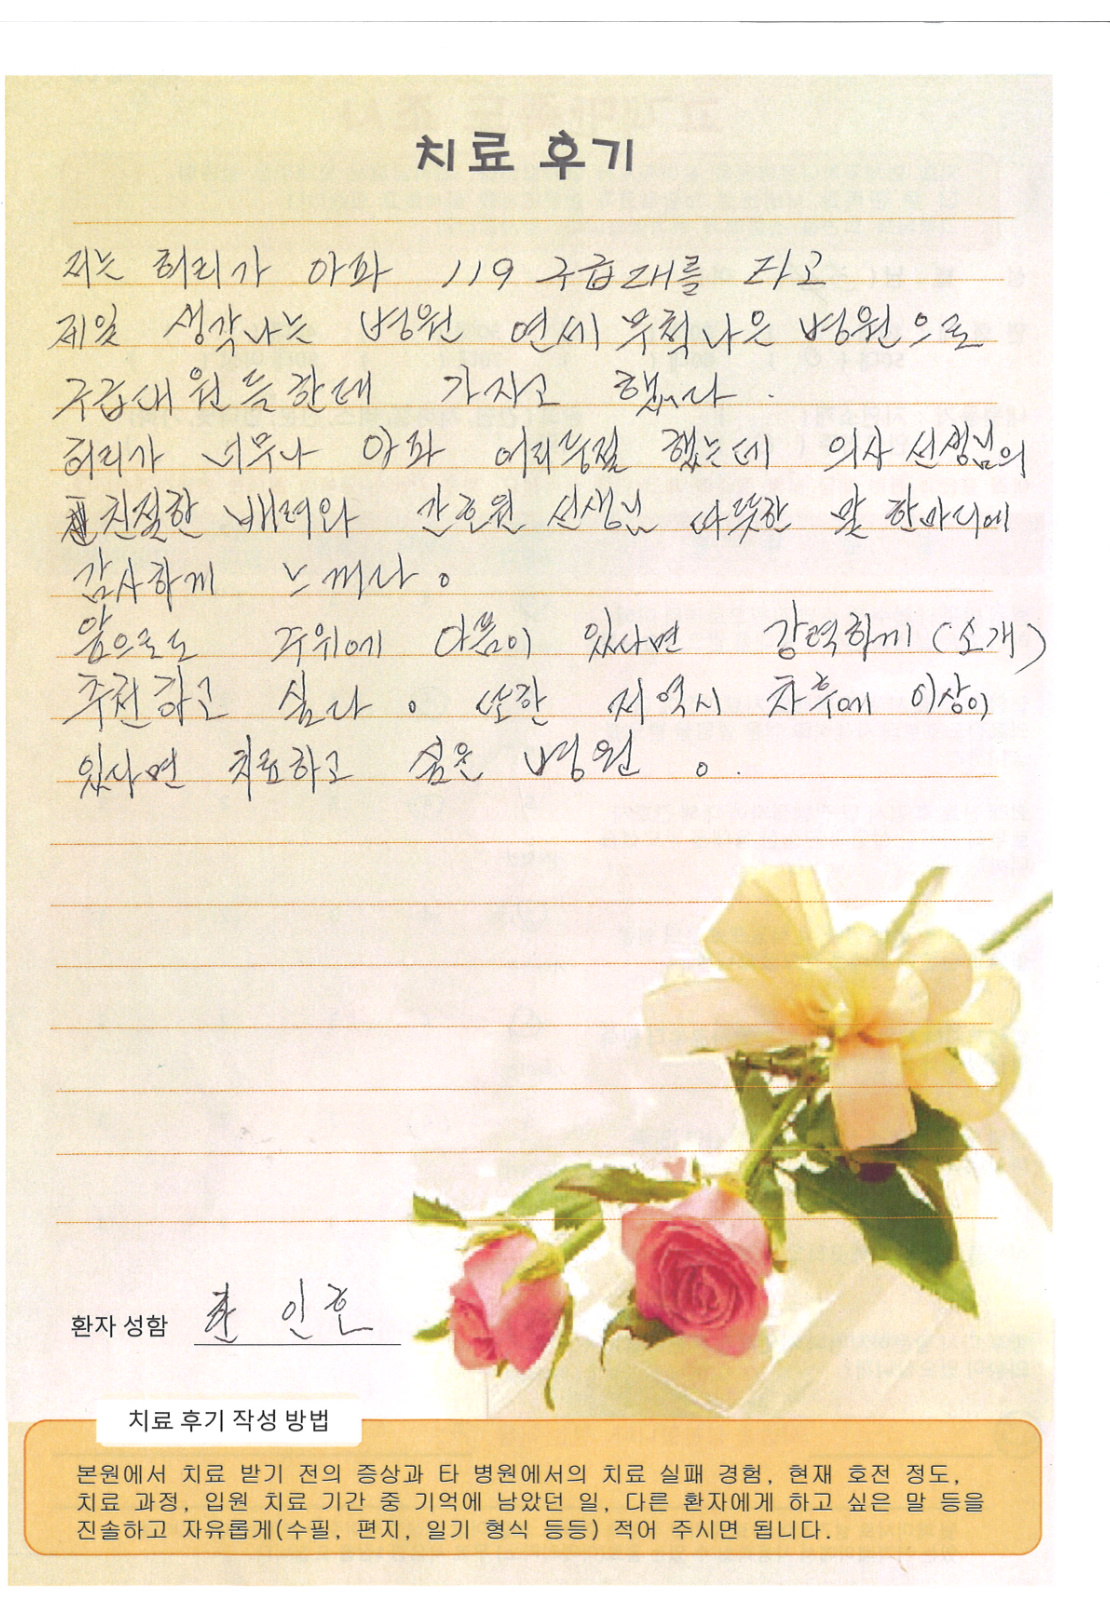 치료 후기
저는 허리가 아파 119 구급대를 타고
제일 생각나는 병원 연세무척나은병원으로
구급대원들한데 가자고 했다.
허리가 너무나 아파 어리둥절 했는데 의사 선생님의
친절한 배려와 간호원 선생님 따뜻한 말 한마디에
감사하게 느껴다.
앞으로도 주위에 아픔이 있사면 강력하게 (소개)
추천하고 싶다. 또한 저 역시 차후에 이상이
있사면 치료하고 싶은 병원.
환자 성함 인호
치료 후기 작성 방법
본원에서 치료 받기 전의 증상과 타 병원에서의 치료 실패 경험, 현재 호전 정도,
치료 과정, 입원 치료 기간 중 기억에 남았던 일, 다른 환자에게 하고 싶은 말 등을
진솔하고 자유롭게(수필, 편지, 일기 형식 등등) 적어 주시면 됩니다.